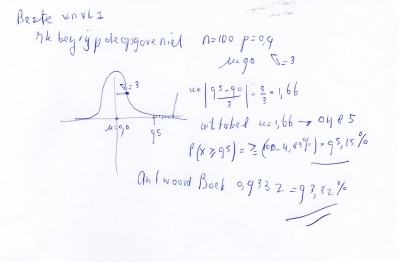 Beste wnvl1
Ik begrijp de opgave niet n=100 p=0,9
μ=90 σ=3
σ=3
u=|95-90/3|=5/3=1,66
uit tabel u=1,66 → 0485
μ=90 95
P(X⩾95)=≥(100-4,85%)=95,15%
Antwoord Boek 0,9332=93,32%